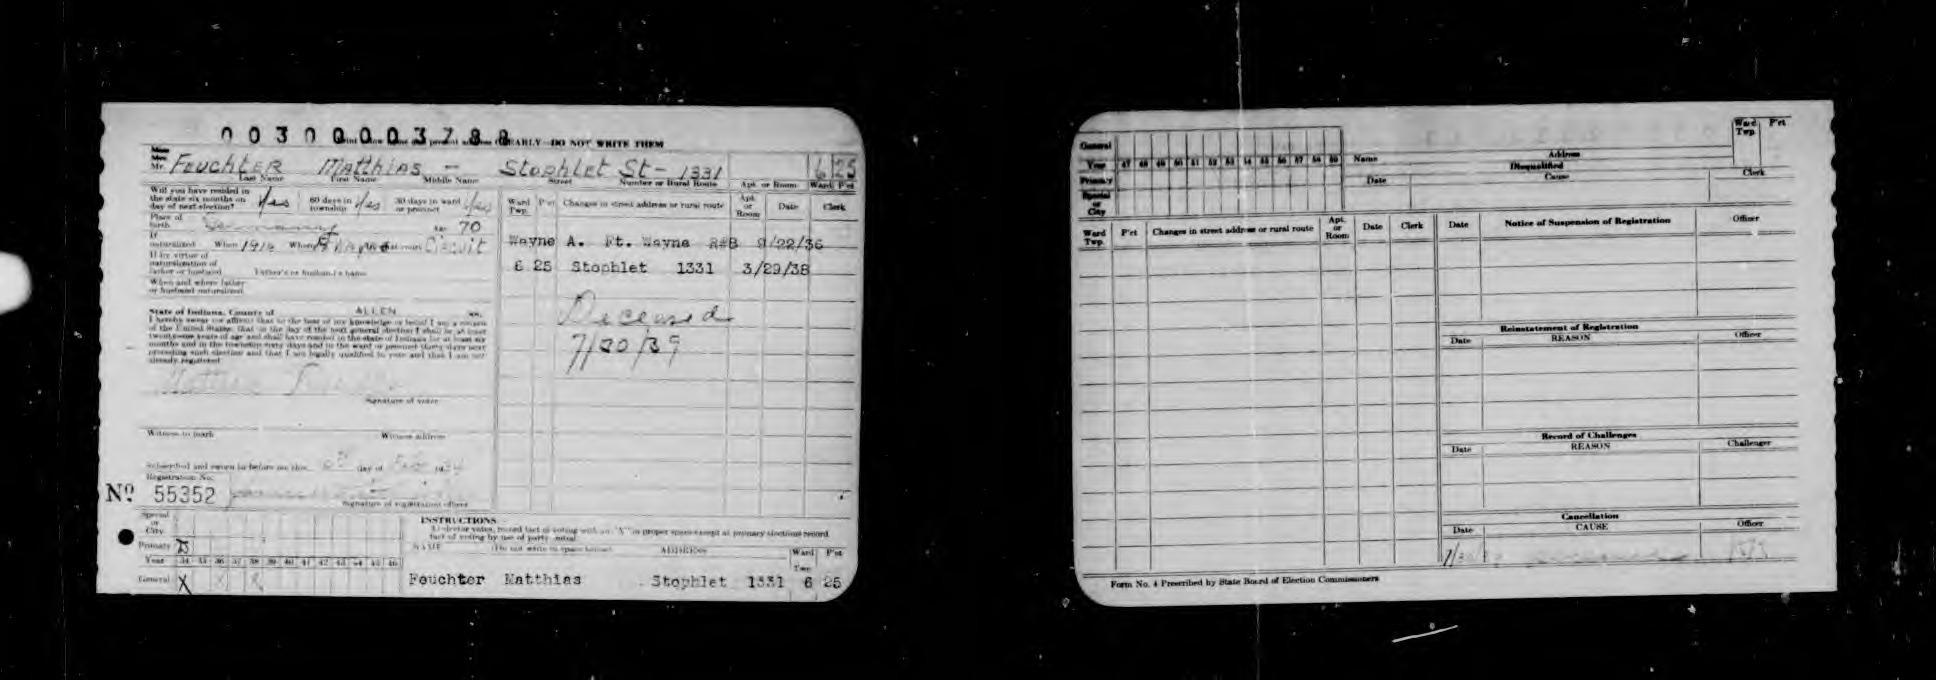 00300003788
EARLY—DO NOT WRITE THEM
Feuchter Matthias — Stophlet St — 1331 6 25
Last Name First Name Middle Name Street Number or Rural Route Apt. or Room Ward P'ct
Will you have resided in
the state six months on
day of next election? Yes 60 days in
township Yes 30 days in ward
or precinct Yes
Place of
birth Germany Age 70
If
naturalized When Where Court Circuit
If by virtue of
naturalization of
father or husband Father's or husband's name
When and where father
or husband naturalized
State of Indiana, County of ALLEN ss.
I hereby swear (or affirm) that to the best of my knowledge or belief I am a citizen
of the United States; that on the day of the next general election I shall be at least
twenty-one years of age and shall have resided in the state of Indiana for at least six
months and in the township sixty days and in the ward or precinct thirty days next
preceding such election and that I am legally qualified to vote and that I am not
already registered.
Signature of voter
Witness to mark Witness address
Subscribed and sworn to before me this day of
Registration No.
Nº 55352
Signature of registration officer
Ward
Twp. P'ct Changes in street address or rural route Apt.
or
Room Date Clerk
Wayne A. Ft. Wayne R#8 9/22/36
6 25 Stophlet 1331 3/29/38
Deceased
7/30/39
Special
or
City
Primary D
Year 34 35 36 37 38 39 40 41 42 43 44 45 46
General X X X
INSTRUCTIONS
If elector votes, record fact of voting with an "X" in proper space except at primary elections record
fact of voting by use of party initial
NAME (Do not write in space below) ADDRESS Ward
Twp. P'ct
Feuchter Matthias Stophlet 1331 6 25
General
Year 47 48 49 50 51 52 53 54 55 56 57 58 59
Primary
Special
or
City
Name Address Ward
Twp. P'ct
Disqualified
Date Cause Clerk
Ward
Twp. P'ct Changes in street address or rural route Apt.
or
Room Date Clerk
Date Notice of Suspension of Registration Officer
Reinstatement of Registration
Date REASON Officer
Record of Challenges
Date REASON Challenger
Cancellation
Date CAUSE Officer
Form No. 4 Prescribed by State Board of Election Commissioners